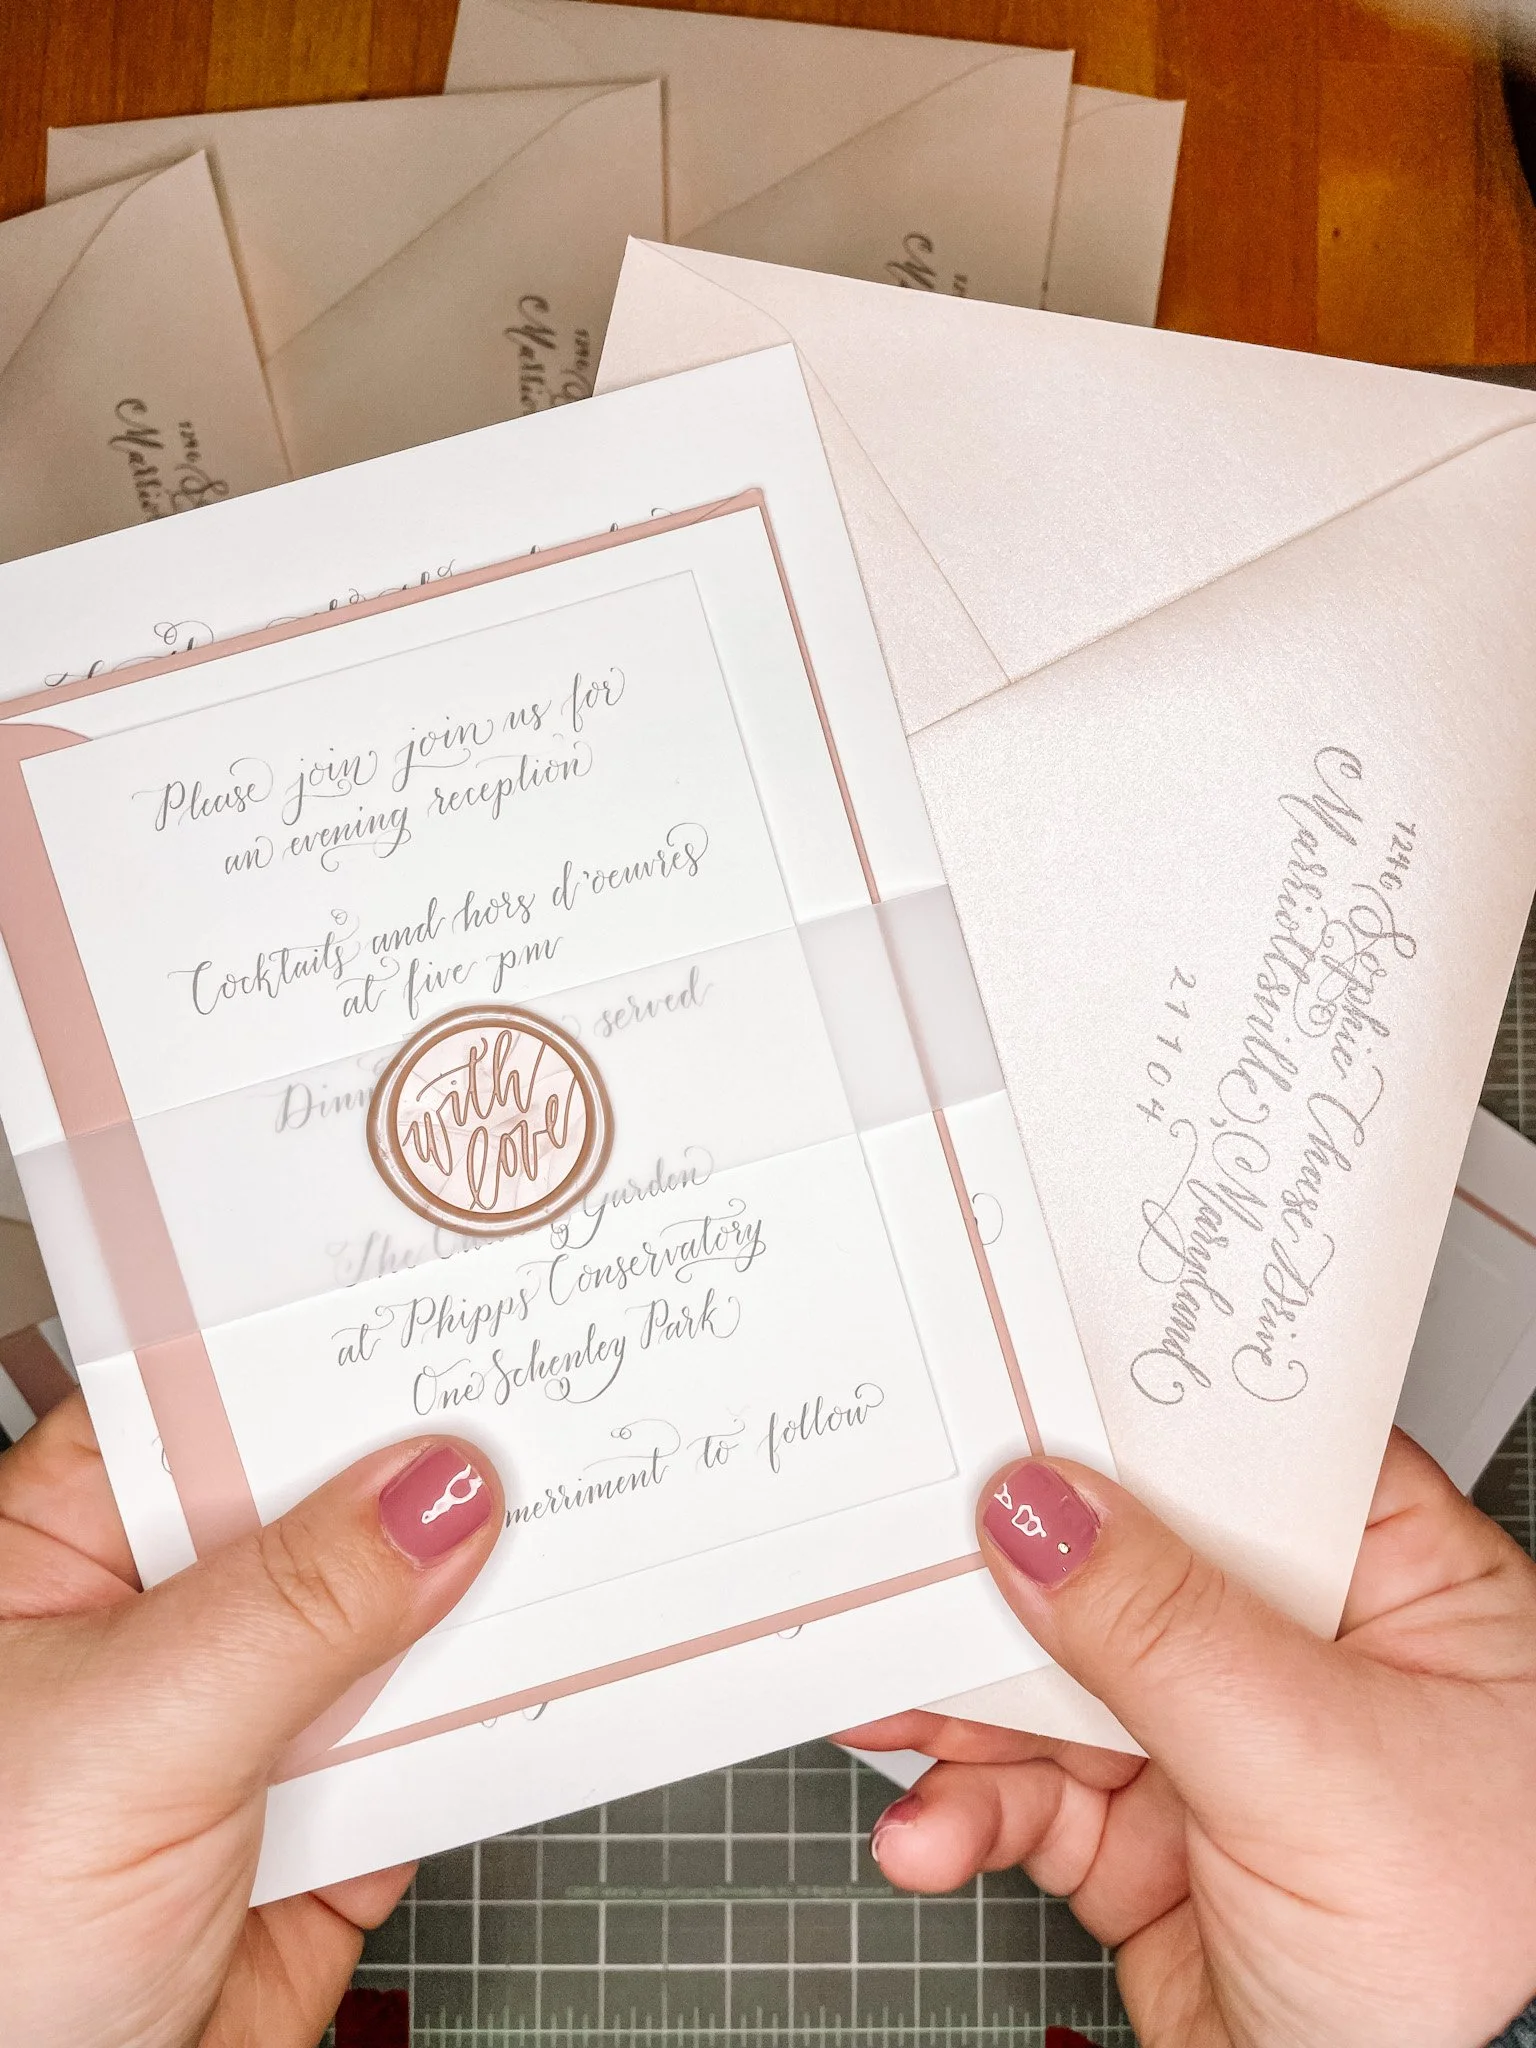 Please join join us for
an evening reception
Cocktails and hors d'oeuvres
at five pm
served
with
love
The
Garden
at Phipps Conservatory
One Schenley Park
merriment to follow
1246 Sophie Chase Drive
Marriottsville, Maryland
21104